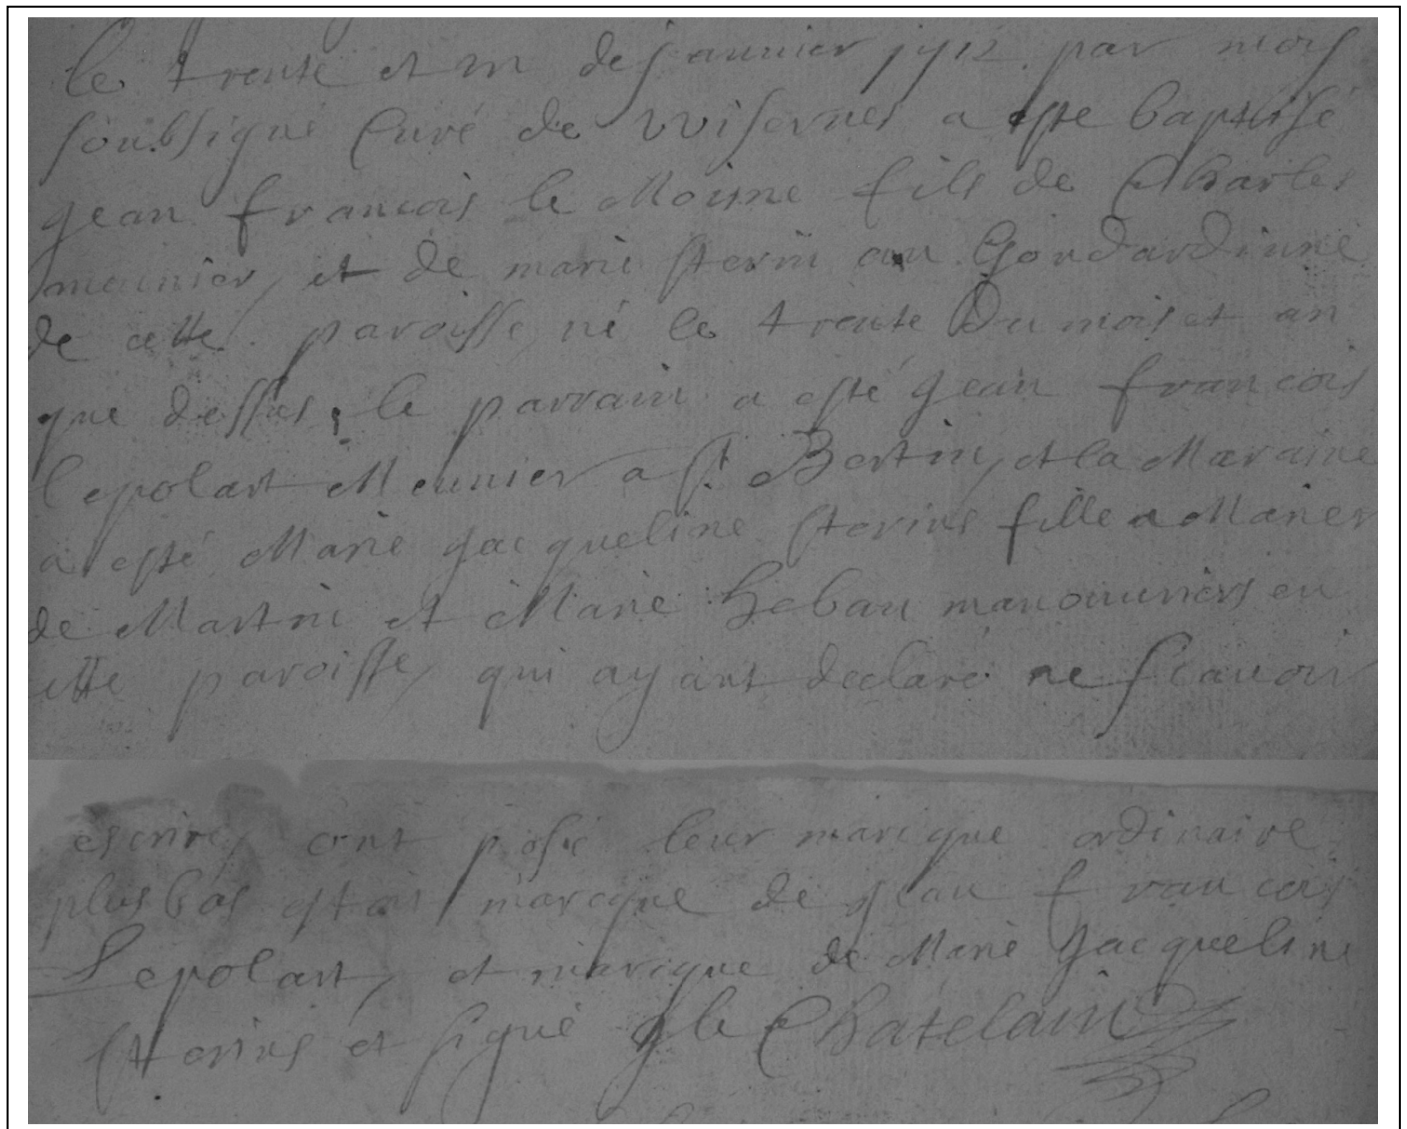 le trente et un de januier 1712 par moy
soubsigné Curé de wisernes a este baptisé
jean francois le Moisne fils de Charles
meunier, et de marie sterin au Gondardinne
de cette paroisse, né le trente Du mois et an
que dessus, le parrain a esté jean francois
lepolart Meunier a st Bertin, et la Maraine
a esté Marie jacqueline sterins fille a Marier
de Martin et Marie heban manouuriers en
cette paroisse, qui ayant declaré ne scauoir
escrire, ont posé leur marcque ordinaire,
plus bas estoit marcque de jean francois
Lepolart, et marcque de Marie jacqueline
sterins et signé j le Chatelain